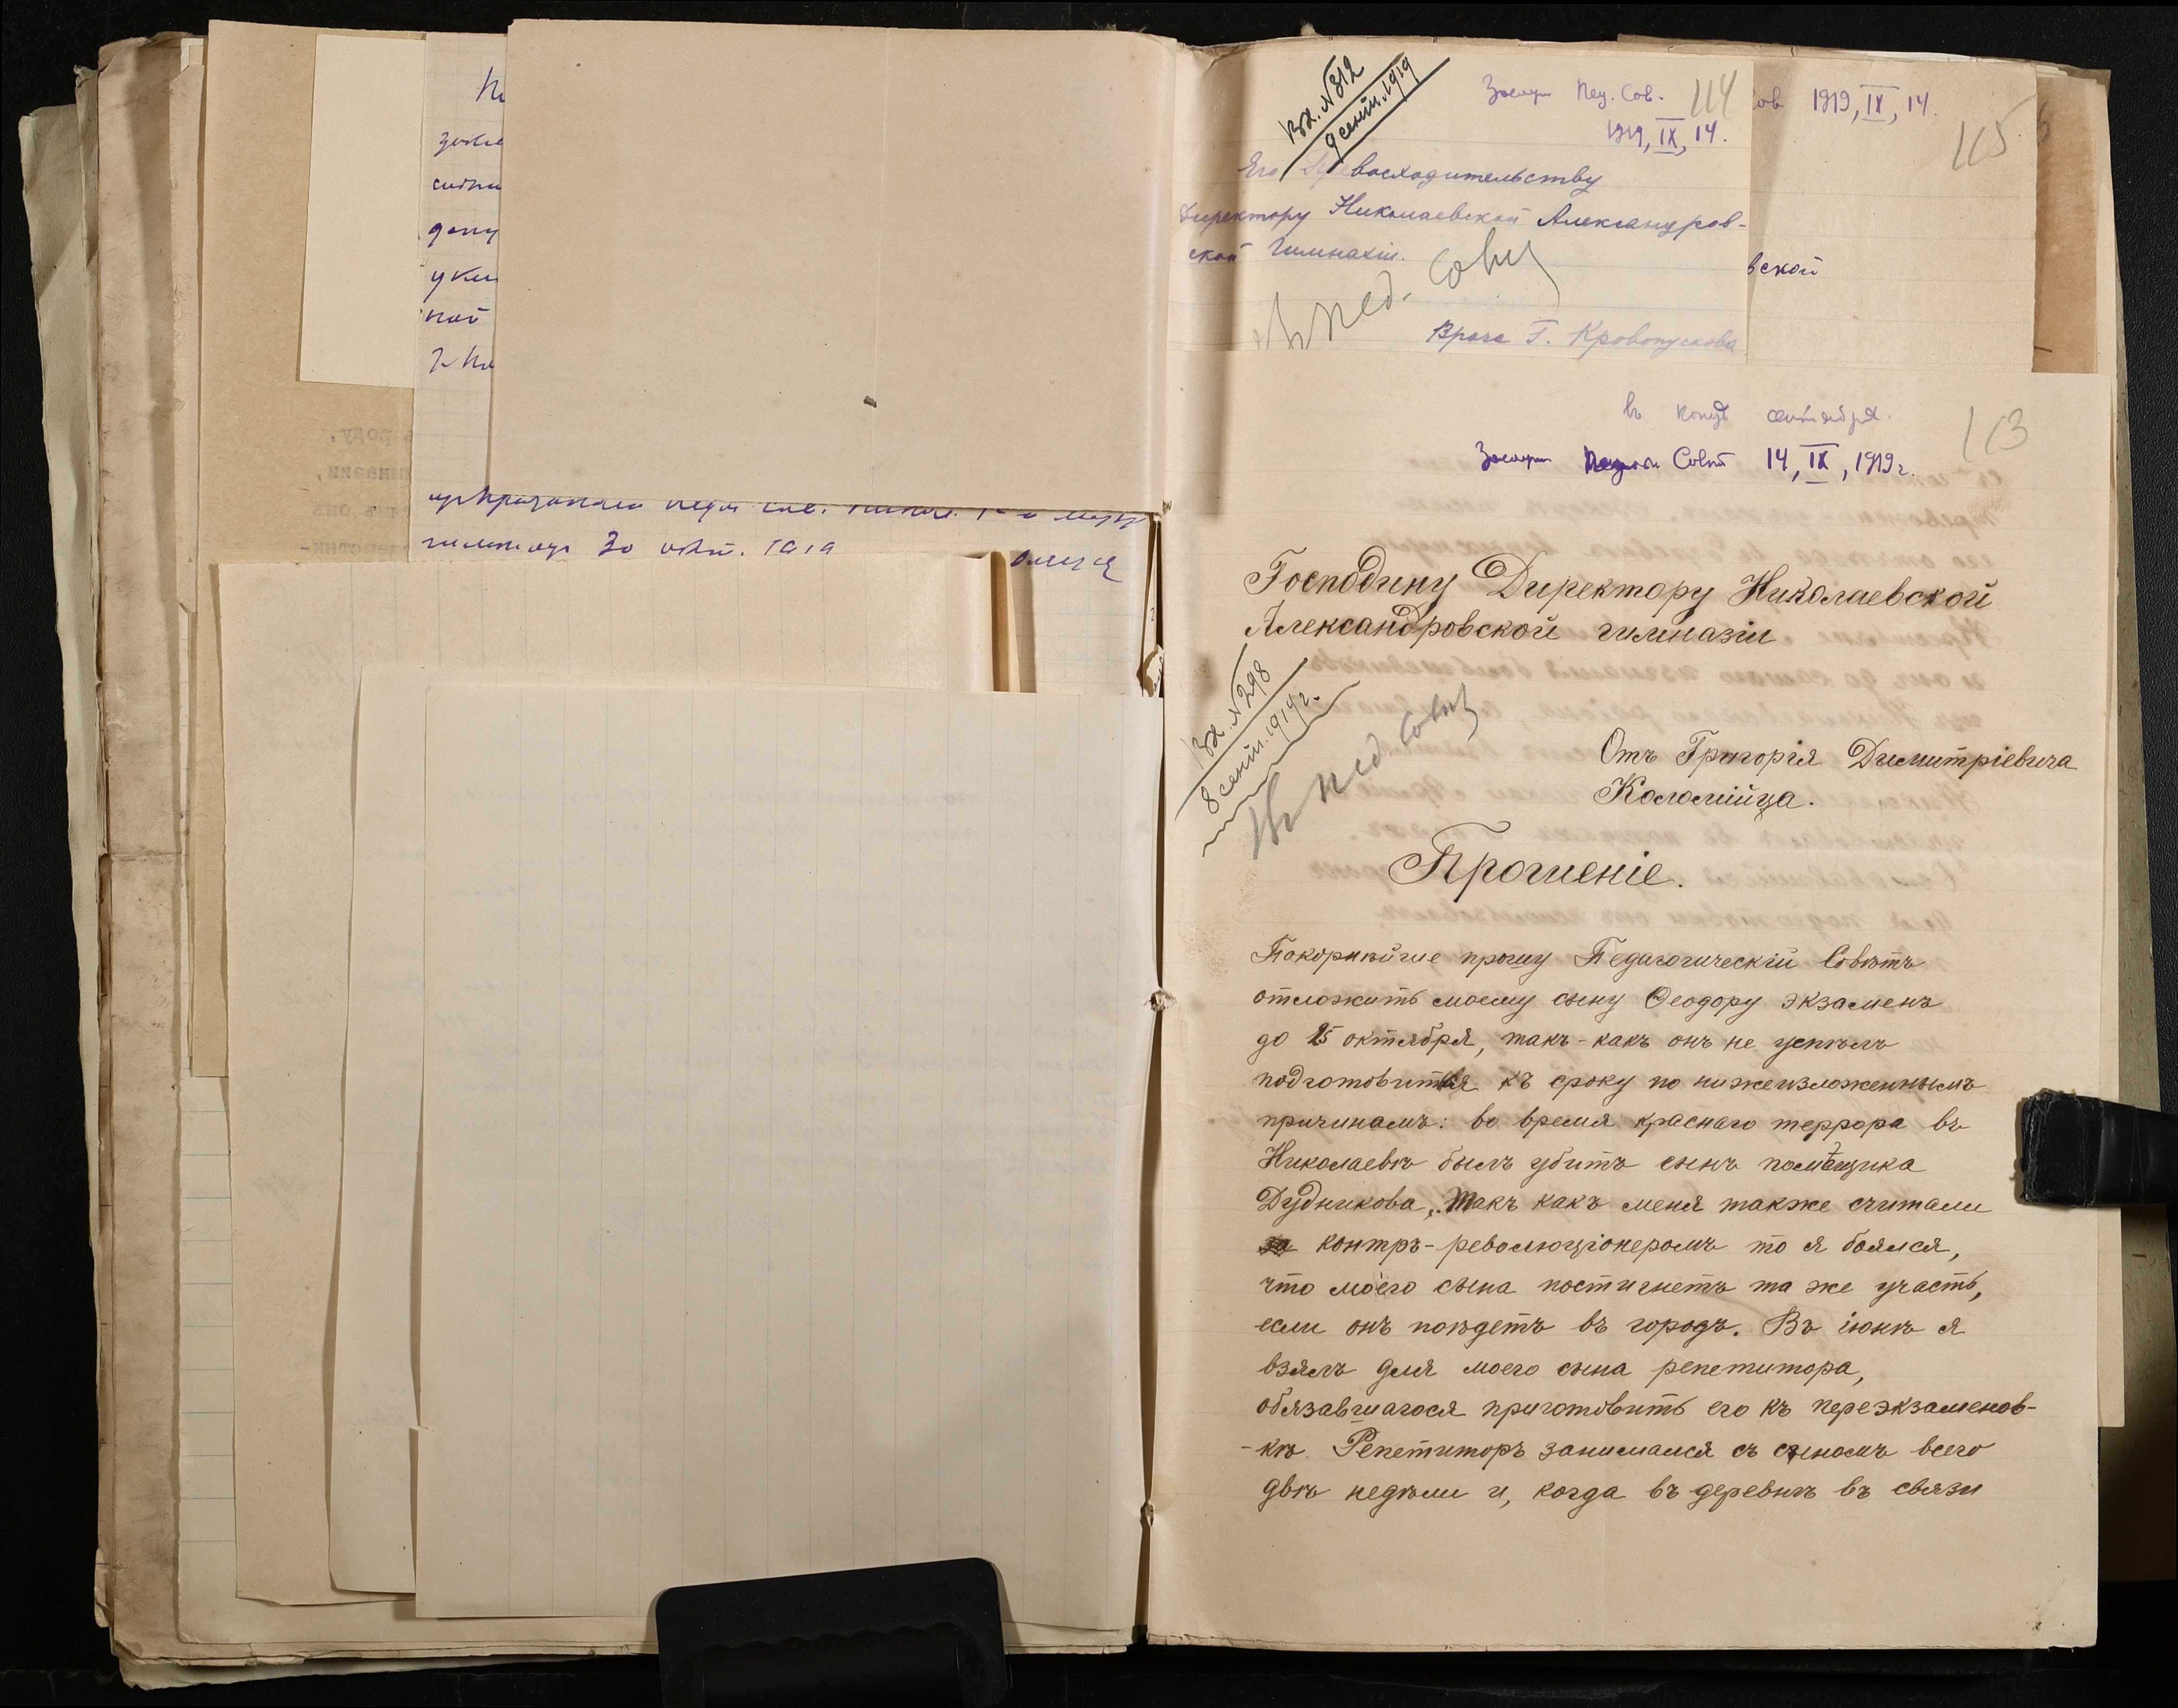 зая
сит
допу
уки
ной
30 окт. 1919
Вх. №312
9 сент. 1919
Пед. Сов. 114
1919, IX, 14.
Его Превосходительству
Директору Николаевской Александров-
ской Гимназіи.
Въ пед. совѣт
Врача Г. Кровопускова
ов 1919, IX, 14.
115
вской
въ концѣ сентября.
113
Засѣдан Педагог Совѣт 14, IX, 1919 г.
Господину Директору Николаевской
Александровской гимназіи
Вх. №298
8 сент. 1919 г.
Въ пед. Совѣт
Отъ Григорія Димитріевича
Коломійца.
Прошеніе.
Покорнѣйше прошу Педагогическій Совѣтъ
отложить моему сыну Ѳеодору экзаменъ
до 25 октября, такъ-какъ онъ не успѣлъ
подготовиться къ сроку по нижеизложеннымъ
причинамъ: во время краснаго террора въ
Николаевѣ былъ убитъ сынъ помѣщика
Дудникова, Такъ какъ меня также считали
контръ-революціонеромъ то я боялся,
что моего сына постигнетъ та же участь,
если онъ поѣдетъ въ городъ. Въ іюнѣ я
взялъ для моего сына репетитора,
обязавшагося приготовить его къ переэкзаменов-
-кѣ. Репетиторъ занимался съ сыномъ всего
двѣ недѣли и, когда въ деревнѣ въ связи